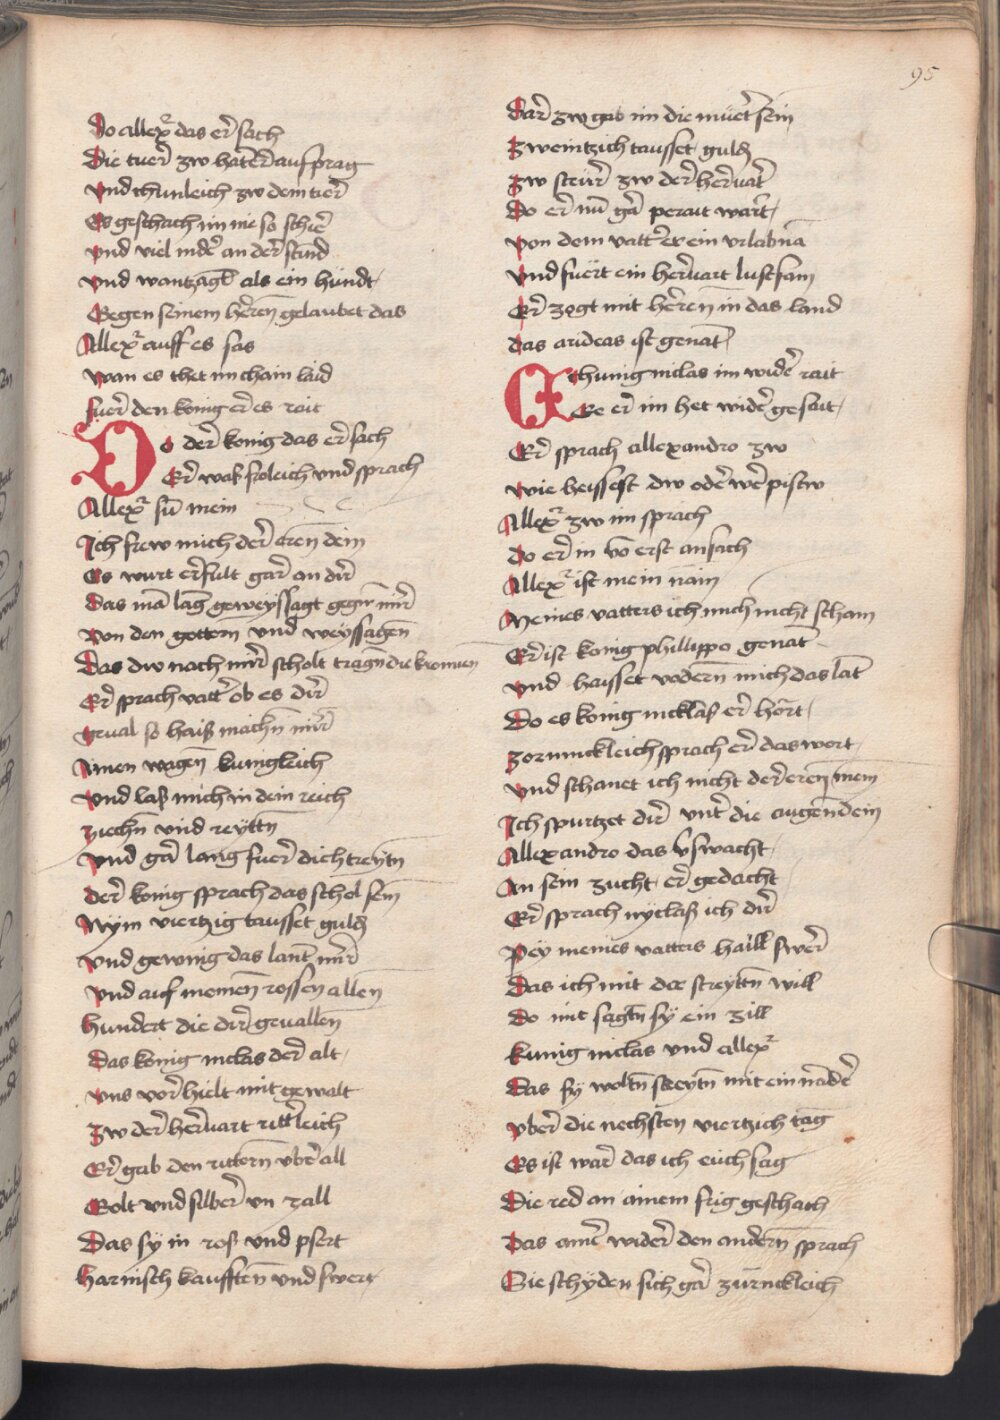 95
Do allex̄ das er sach
Die tuer zw hat er auf sprag
vnd chunleich zw dem tier
Es geschach im nie so schir̄
vnd viel nider an der stund
vnd wantzagt als ein hundt
Gegen seinem herren gelaubet das
Allex̄ auff es sas
wan es thet im chain laid
fuer den konig er es rait
Do der konig das er sach
Er waß froleich vnd sprach
Allex̄ sun̄ mein
Ich frew mich der eren dein
Es wurt erfult gar an dir
Das mā lag geweyssagt gegn mir
von den gottern vnd weyssagen
Das dw nach mir scholt tragn die kronnen
Er sprach vatter ob es dir
geual so haiß machn mir
Ainen wagen kunigleich
vnd las mich in dein reich
ziechn vnd reyttn
vnd gā lang fuer dich treytn
der konig sprach das schol sein
Nym viertzig tausset guld
vnd gewing das lant mir
vnd auf meinen rossen allen
hundert die dir geuallen
Das konig niclas der alt
vns vor hielt mit gewalt
zw der heruart ritterleich
Er gab den rittern vber all
Golt vnd silber vn zall
Das sy in roß vnd pfert
harnisch kaufften vnd swert
Dar zw gab im die mueter sein
zweintzich tausset guld
zw steur zw der heruart
Do er nū gā perait wart
von dem vatter er ein vrlab nā
vnd fuert ein heruart lustsam
Er zogt mit heren in das land
das arideas ist genāt
Chunig niclas im wider rait
Ee er im het wider gesait
Er sprach allexandro zw
wie heissest dw oder wer pistw
Allex̄ zw im sprach
do er in vō erst ansach
Allex̄ ist mein nam
Meines vatters ich mich nicht scham
Er ist konig phillippo genāt
vnd haisset vodern mich das lāt
Do es konig nicklaß er hort
zornnickleich sprach er das wort
vnd schanet ich nicht der eren mein
Ich spurtzet dir vnter die augen dein
Allexandro das vswacht
An sein zucht er gedacht
Er sprach nyclaß ich dir
Pey meines vatters haill swer
Das ich mit dir streyttn will
do mit sagtn sy ein zill
kunig niclas vnd allex̄
Das sy woltn streytn mit ein nāder
vber die nechsten viertzich tag
Es ist war das ich euch sag
Die red an ainem frig geschach
Das ainer wider den andern sprach
Sie schyden sich gā zurnckleich